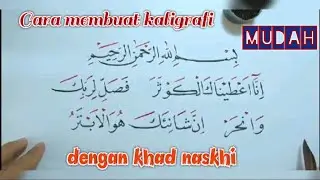 Cara membuat kaligrafi
MUDAH
بِسْمِ اللهِ الرَّحْمٰنِ الرَّحِيْمِ
اِنَّا اَعْطَيْنَاكَ الْكَوْثَرَ فَصَلِّ لِرَبِّكَ
وَانْحَرْ اِنَّ شَانِئَكَ هُوَ الْاَبْتَرُ
dengan khad naskhi